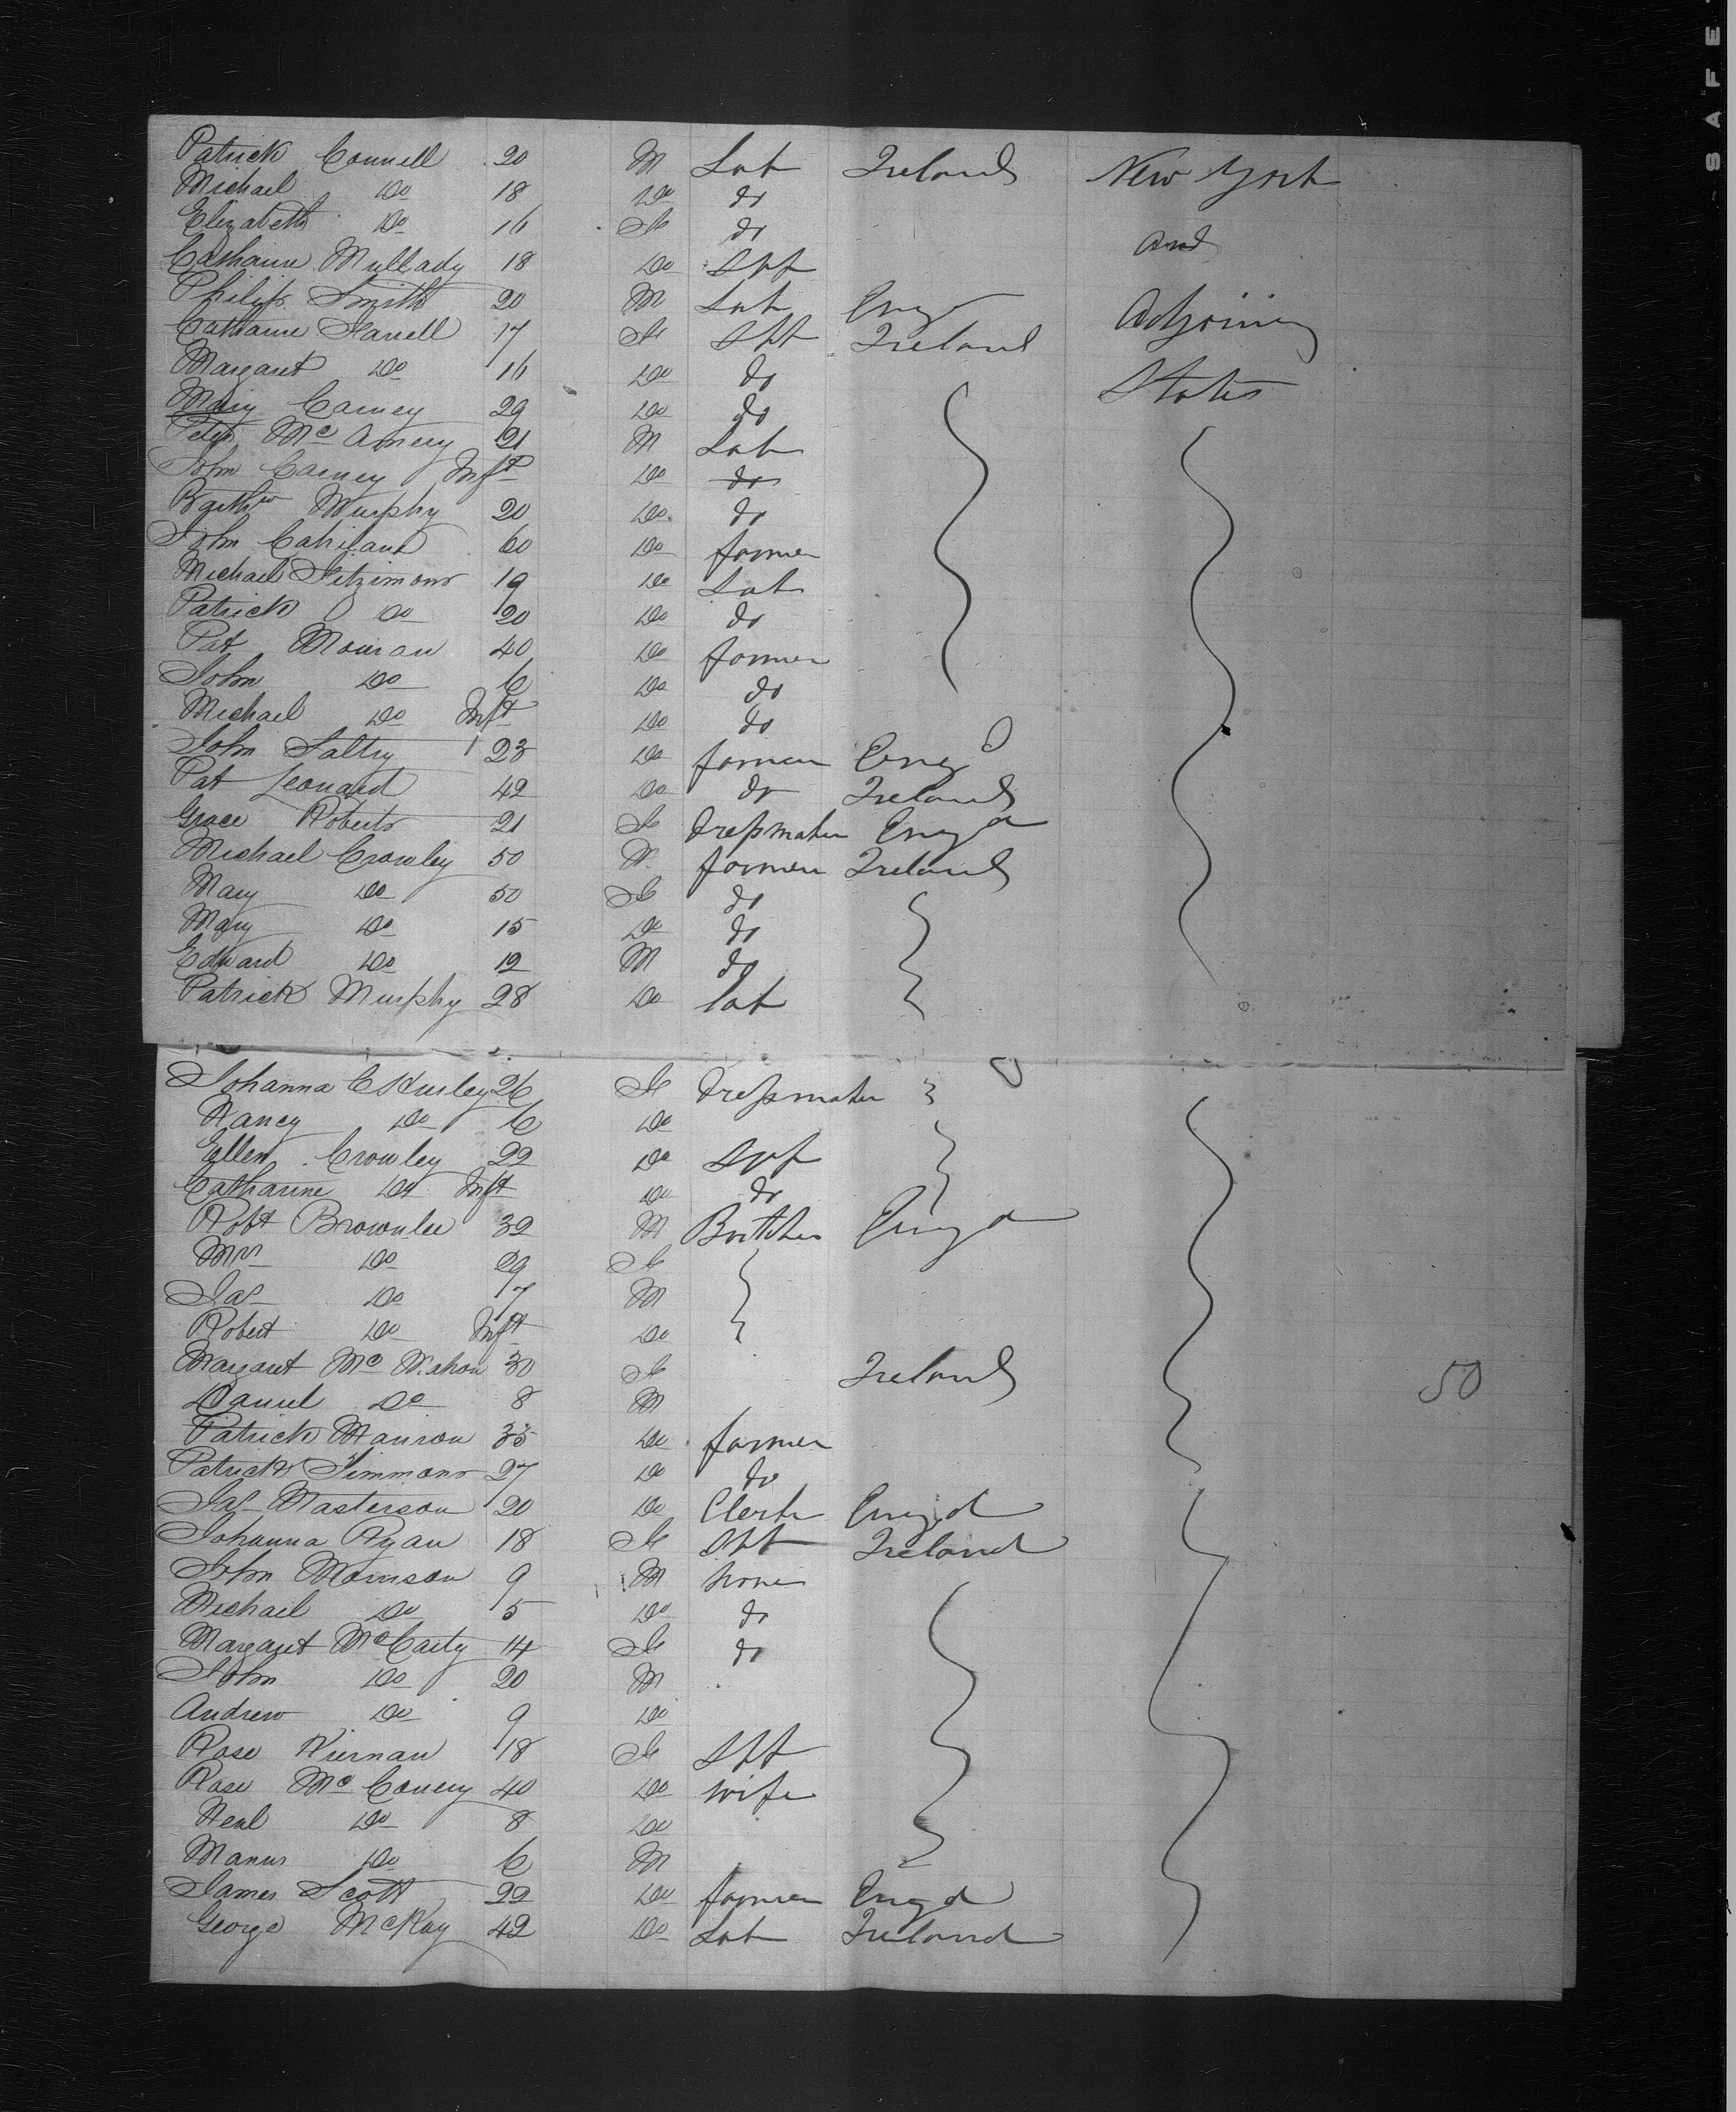 SAFE
Patrick Connell 20 M Lab Ireland New York
Michael Do 18 Do do
Elizabeth Do 16 F do and
Catharine Mullady 18 Do Spt
Philip Smith 20 M Lab Eng Adjoining
Catharine Farrell 17 F Spt Ireland
Margaret Do 16 Do do States
Mary Carney 29 Do do
Peter Mc 21 M Lab
John Carney Inft Do do
Barthw Murphy 20 Do do
John 60 Do farmer
Michael Fitzimons 19 Do Lab
Patrick Do 20 Do do
Pat 40 Do farmer
John Do 6 Do do
Michael Do Inft Do do
John 23 Do farmer Eng
Pat Leonard 42 Do do Ireland
Grace Roberts 21 F Dressmaker Engd
Michael Crowley 50 M farmer Ireland
Mary Do 50 F do
Mary Do 15 Do do
Edward Do 12 M do
Patrick Murphy 28 Do lab
Johanna 26 F Dressmaker
Nancy Do 6 Do
Ellen Crowley 22 Do Spt
Catharine Do Inft Do do
Robt Brownlee 32 M Butcher Engd
Mrs Do 29 F
Jas Do 7 M
Robert Do Inft Do
Margaret Mc Mahon 30 F Ireland
Daniel Do 8 M 50
Patrick 35 Do farmer
Patrick Simmons 27 Do do
Jas Masterson 20 Do Clerk Engd
Johanna Ryan 18 F Spt Ireland
John Morrison 9 M none
Michael Do 5 Do do
Margaret McCarty 14 F do
John Do 20 M
Andrew Do 9 Do
Rose Kiernan 18 F Spt
Rose Mc 40 Do wife
Do 8 Do
Manus Do 6 M
James Scott 22 Do farmer Engd
George McKay 42 Do Lab Ireland